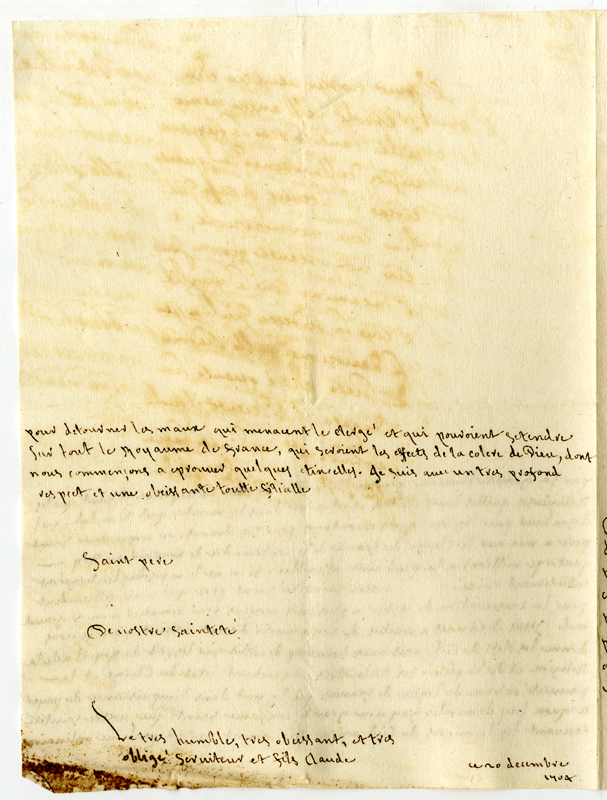 pour detourner les maux qui menacent le clergé et qui pouroient setendre
sur tout le Royaume de france, qui seroient les effects de la colere de Dieu, dont
nous commençons a eprouver quelques etincelles. Je suis avec un tres profond
respect et une obeissante toutte filialle
Saint pere
De vostre Sainteté
Le tres humble, tres obeissant, et tres
obligé serviteur et fils Claude
ce 20 decembre
1704